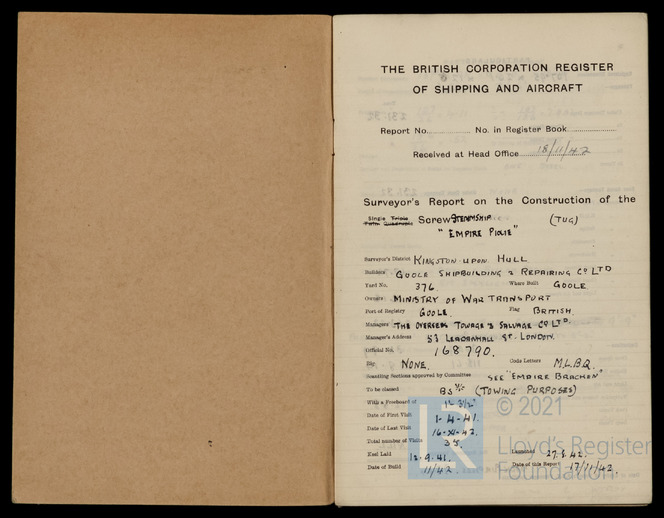 THE BRITISH CORPORATION REGISTER
OF SHIPPING AND AIRCRAFT
Report No. No. in Register Book
Received at Head Office 18/11/42
Surveyor's Report on the Construction of the
Single Triple
Twin Quadruple Screw STEAMSHIP (TUG)
"EMPIRE PIXIE"
Surveyor's District KINGSTON UPON HULL
Builders GOOLE SHIPBUILDING & REPAIRING CO LTD
Yard No. 376 Where Built GOOLE
Owners MINISTRY OF WAR TRANSPORT
Port of Registry GOOLE Flag BRITISH
Managers THE OVERSEAS TOWAGE & SALVAGE CO LTD
Manager's Address 53 LEADENHALL ST. LONDON.
Official No. 168790.
Rig NONE. Code Letters M.L.B.Q.
Scantling Sections approved by Committee SEE "EMPIRE BRACKEN"
To be classed BS (TOWING PURPOSES)
With a Freeboard of 1'- 3½"
Date of First Visit 1-4-41.
Date of Last Visit 16-XI-42.
Total number of Visits 35.
Keel Laid 12.9.41. Launched 42.
Date of Build 11/42. Date of this Report 17/11/42.
© 2021
LR Lloyd's Register
Foundation